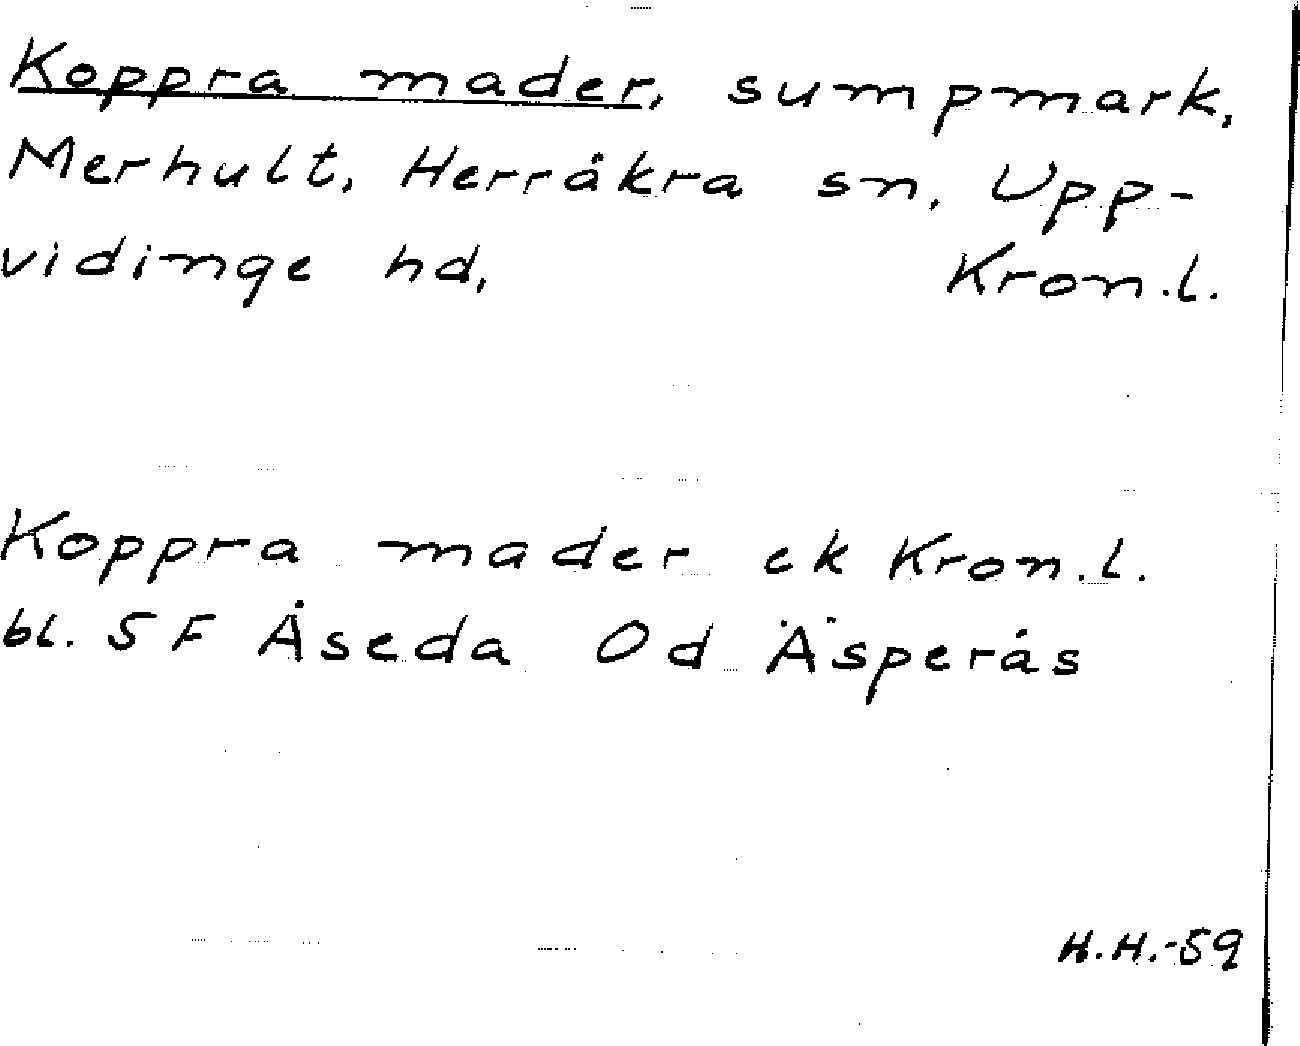 Koppra mader, sumpmark,
Merhult, Herråkra sn, Upp-
vidinge hd, Kron.l.
Koppra mader ek Kron.l.
bl. 5 F Åseda Od Äsperås
H.H.-59